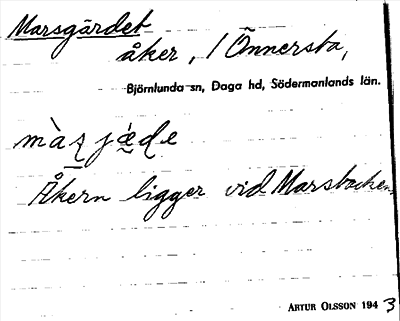 Marsgärdet
åker, / Önnersta,
Björnlunda sn, Daga hd, Södermanlands län.
Åkern ligger vid Marsbacken
ARTUR OLSSON 1943